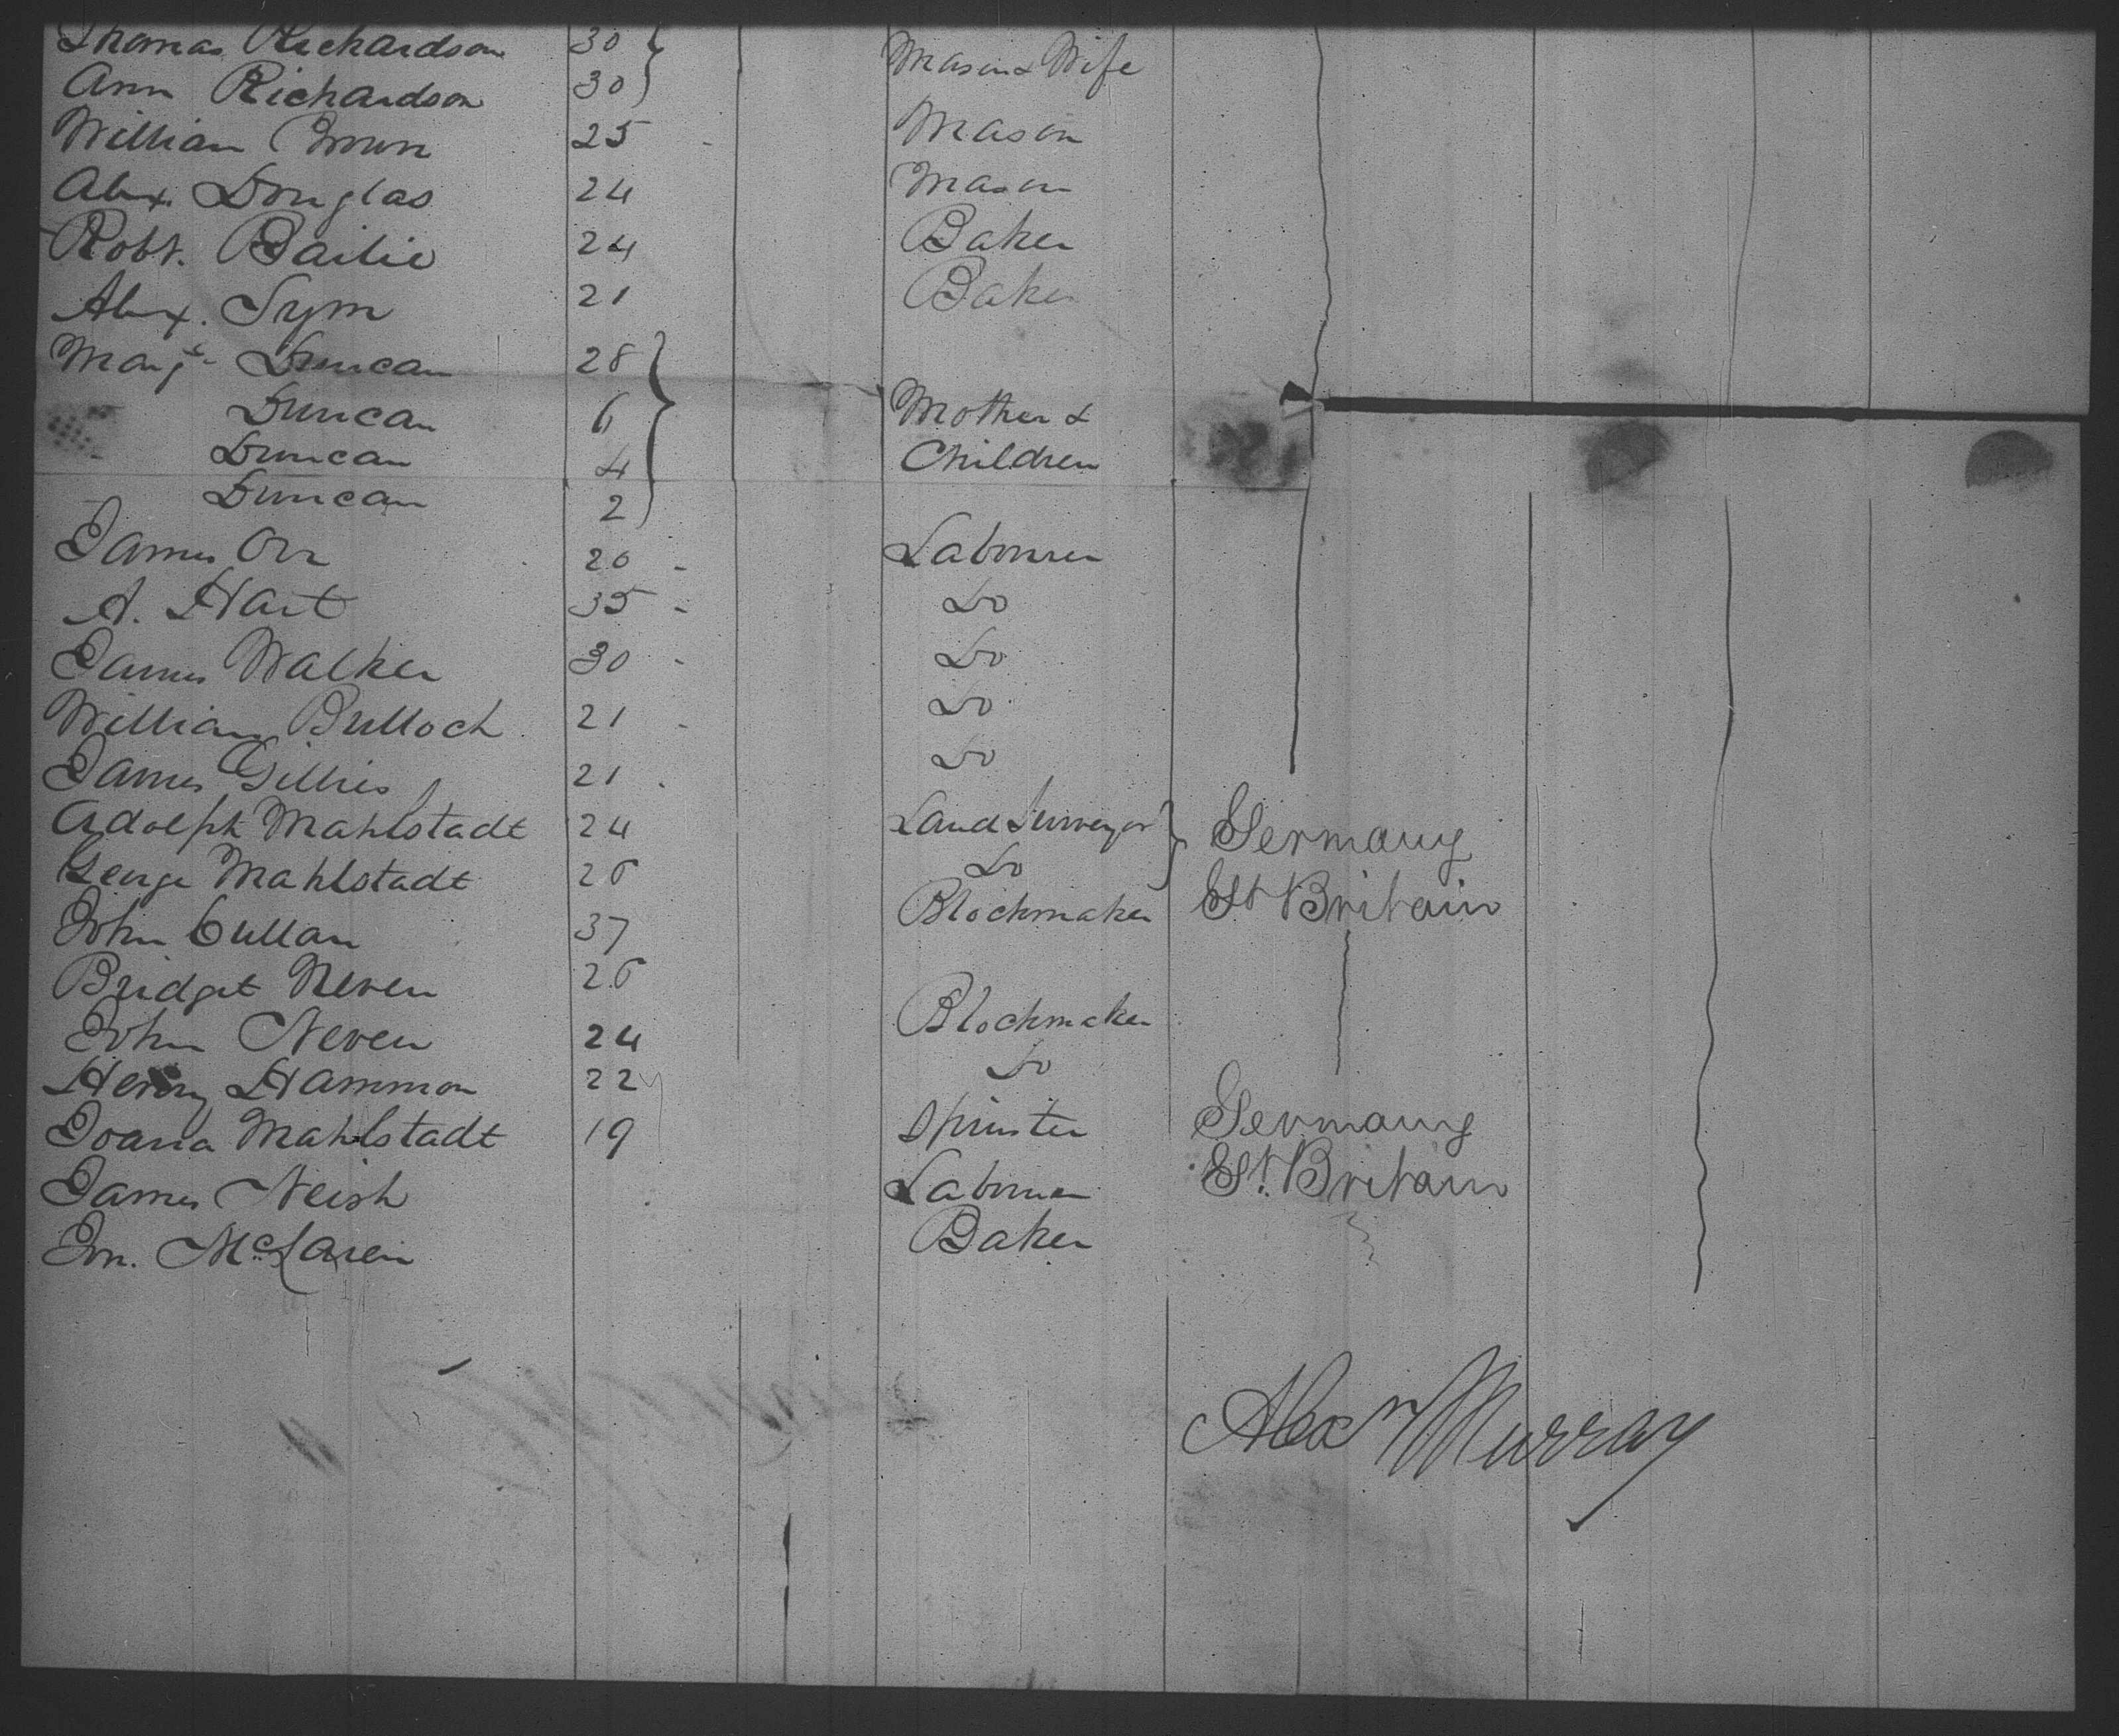 Thomas Richardson 30
Ann Richardson 30 Mason & Wife
William Brown 25 - Mason
Alex. Douglas 24 Mason
Robt. Bailie 24 Baker
Alex. Sym 21 Baker
Margt. Duncan 28
Duncan 6 Mother &
Duncan 4 Children
Duncan 2
James Orr 20 - Labourer
A. Hart 35 - Do
James Walker 30 - Do
William Bulloch 21 - Do
James Gillies 21 - Do
Adolph Mahlstadt 24 Land Surveyor Germany
George Mahlstadt 26 Do
John Cullan 37 Blockmaker Gt Britain
Bridget Neven 26
John Neven 24 Blockmaker
Henry Hammon 22 Do
Joana Mahlstadt 19 Spinster Germany
James Neish Labourer Gt. Britain
Jn. McLaren Baker
Alexr Murray